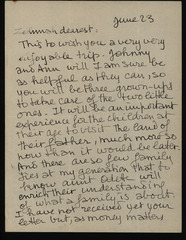 June 23
dearest:
This to wish you a very very
enjoyable trip. Johnny
and Ann will I am sure be
as helpful as they can, so
you will be three grown-ups
to take care of the two little
ones. It will be an important
experience for the children at
their age to visit the land of
their father, much more so
now than it would be later.
And there are so few family
ties at my generation that to
know aunt Odette will
enrich their understanding
of what a family is about.
I have not received yet your
letter but, as money matters